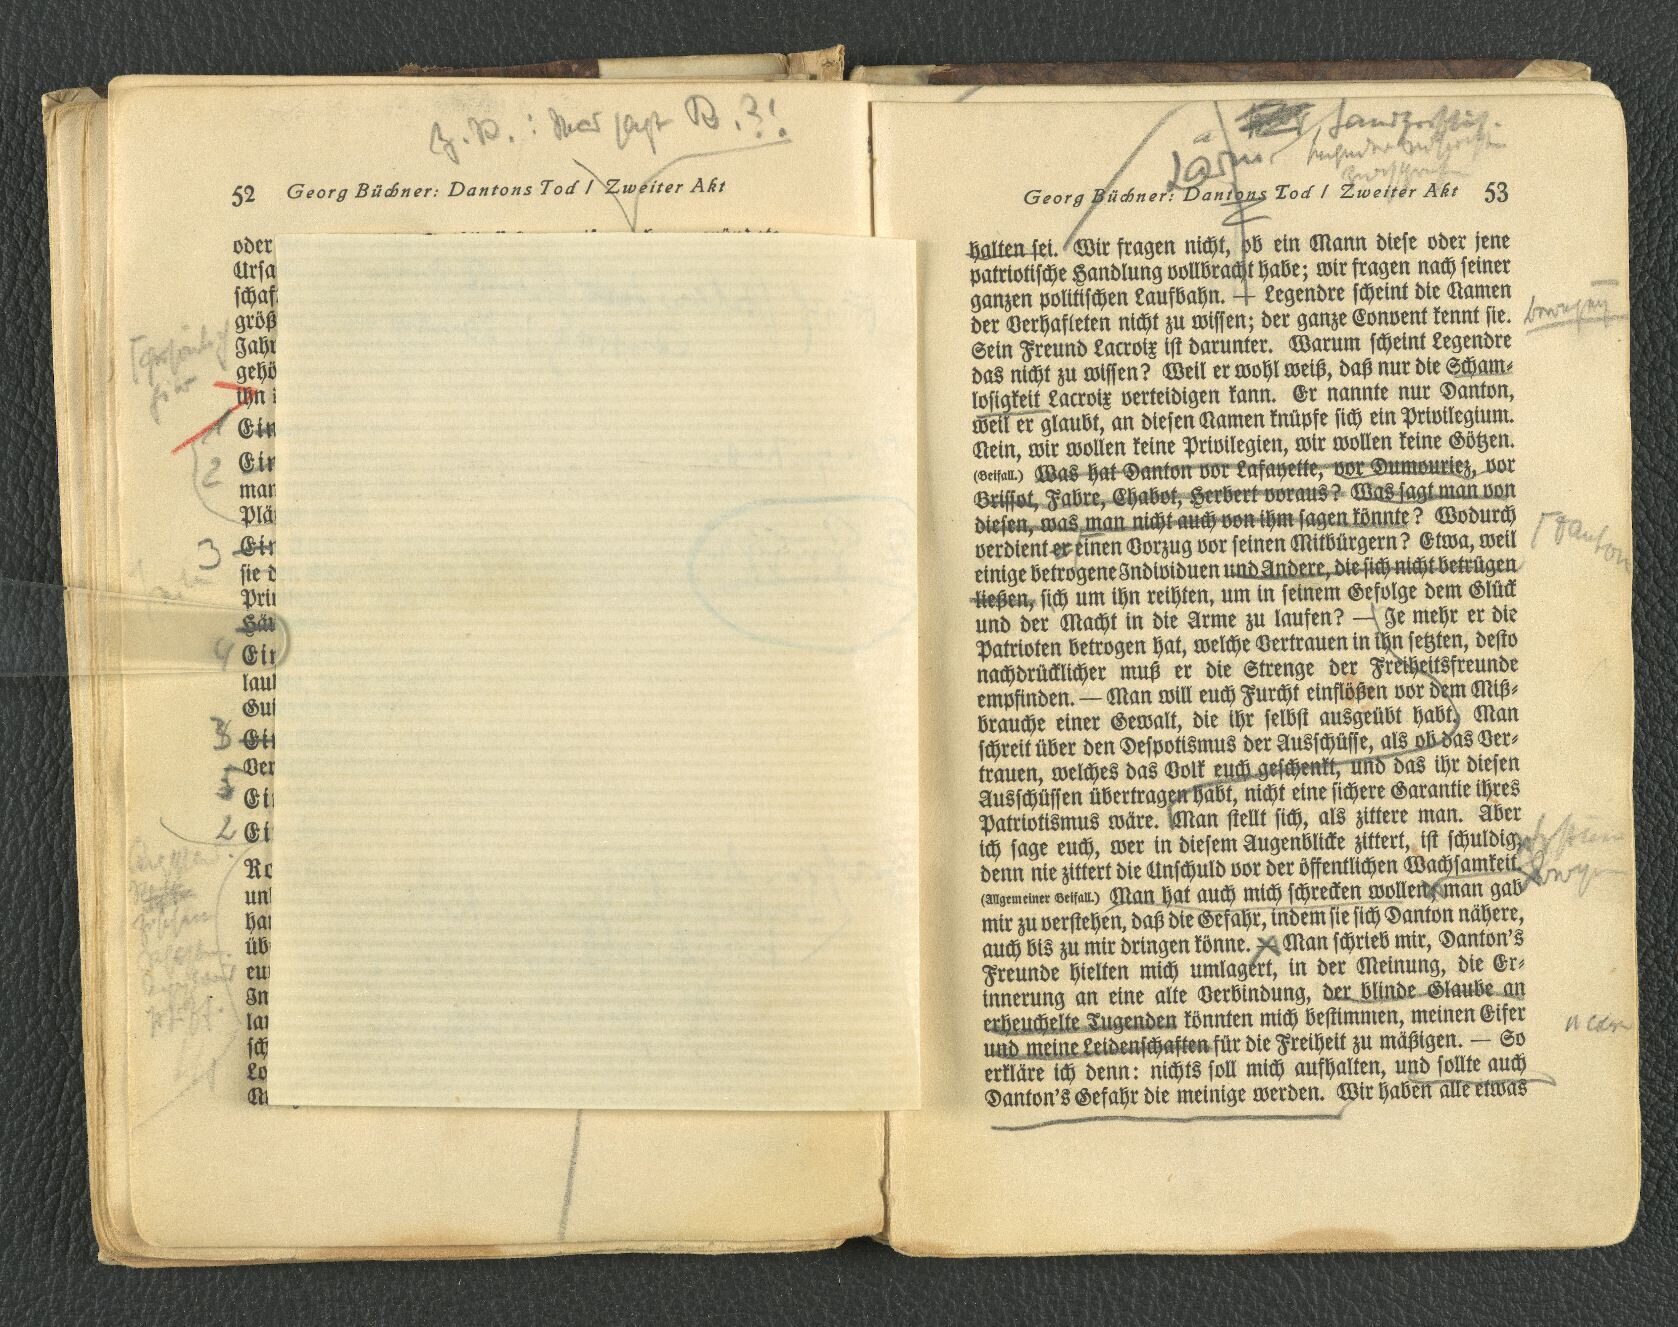 52 Georg Büchner: Dantons Tod / Zweiter Akt
oder
Ursa
schaf
größ
Jahr
gehö
ihn
Ein
Ein
man
Plä
Ein
sie d
Prin
Hän
Ein
lau
Gui
Ein
Ver
Ein
Ei
Ro
unt
han
üb
eur
In
lan
sch
Lo
1
2
3
4
3
5
2
Lärm
Georg Büchner: Dantons Tod / Zweiter Akt 53
halten sei. Wir fragen nicht, ob ein Mann diese oder jene
patriotische Handlung vollbracht habe; wir fragen nach seiner
ganzen politischen Laufbahn. — Legendre scheint die Namen
der Verhafteten nicht zu wissen; der ganze Convent kennt sie.
Sein Freund Lacroix ist darunter. Warum scheint Legendre
das nicht zu wissen? Weil er wohl weiß, daß nur die Scham-
losigkeit Lacroix verteidigen kann. Er nannte nur Danton,
weil er glaubt, an diesen Namen knüpfe sich ein Privilegium.
Nein, wir wollen keine Privilegien, wir wollen keine Götzen.
(Beifall.) Was hat Danton vor Lafayette, vor Dumouriez, vor
Brissot, Fabre, Chabot, Herbert voraus? Was sagt man von
diesen, was man nicht auch von ihm sagen könnte? Wodurch
verdient er einen Vorzug vor seinen Mitbürgern? Etwa, weil
einige betrogene Individuen und Andere, die sich nicht betrügen
ließen, sich um ihn reihten, um in seinem Gefolge dem Glück
und der Macht in die Arme zu laufen? — Je mehr er die
Patrioten betrogen hat, welche Vertrauen in ihn setzten, desto
nachdrücklicher muß er die Strenge der Freiheitsfreunde
empfinden. — Man will euch Furcht einflößen vor dem Miß-
brauche einer Gewalt, die ihr selbst ausgeübt habt. Man
schreit über den Despotismus der Ausschüsse, als ob das Ver-
trauen, welches das Volk euch geschenkt, und das ihr diesen
Ausschüssen übertragen habt, nicht eine sichere Garantie ihres
Patriotismus wäre. Man stellt sich, als zittere man. Aber
ich sage euch, wer in diesem Augenblicke zittert, ist schuldig,
denn nie zittert die Unschuld vor der öffentlichen Wachsamkeit.
(Allgemeiner Beifall.) Man hat auch mich schrecken wollen, man gab
mir zu verstehen, daß die Gefahr, indem sie sich Danton nähere,
auch bis zu mir dringen könne. — Man schrieb mir, Danton's
Freunde hielten mich umlagert, in der Meinung, die Er-
innerung an eine alte Verbindung, der blinde Glaube an
erheuchelte Tugenden könnten mich bestimmen, meinen Eifer
und meine Leidenschaften für die Freiheit zu mäßigen. — So
erkläre ich denn: nichts soll mich aufhalten, und sollte auch
Danton's Gefahr die meinige werden. Wir haben alle etwas
Danton